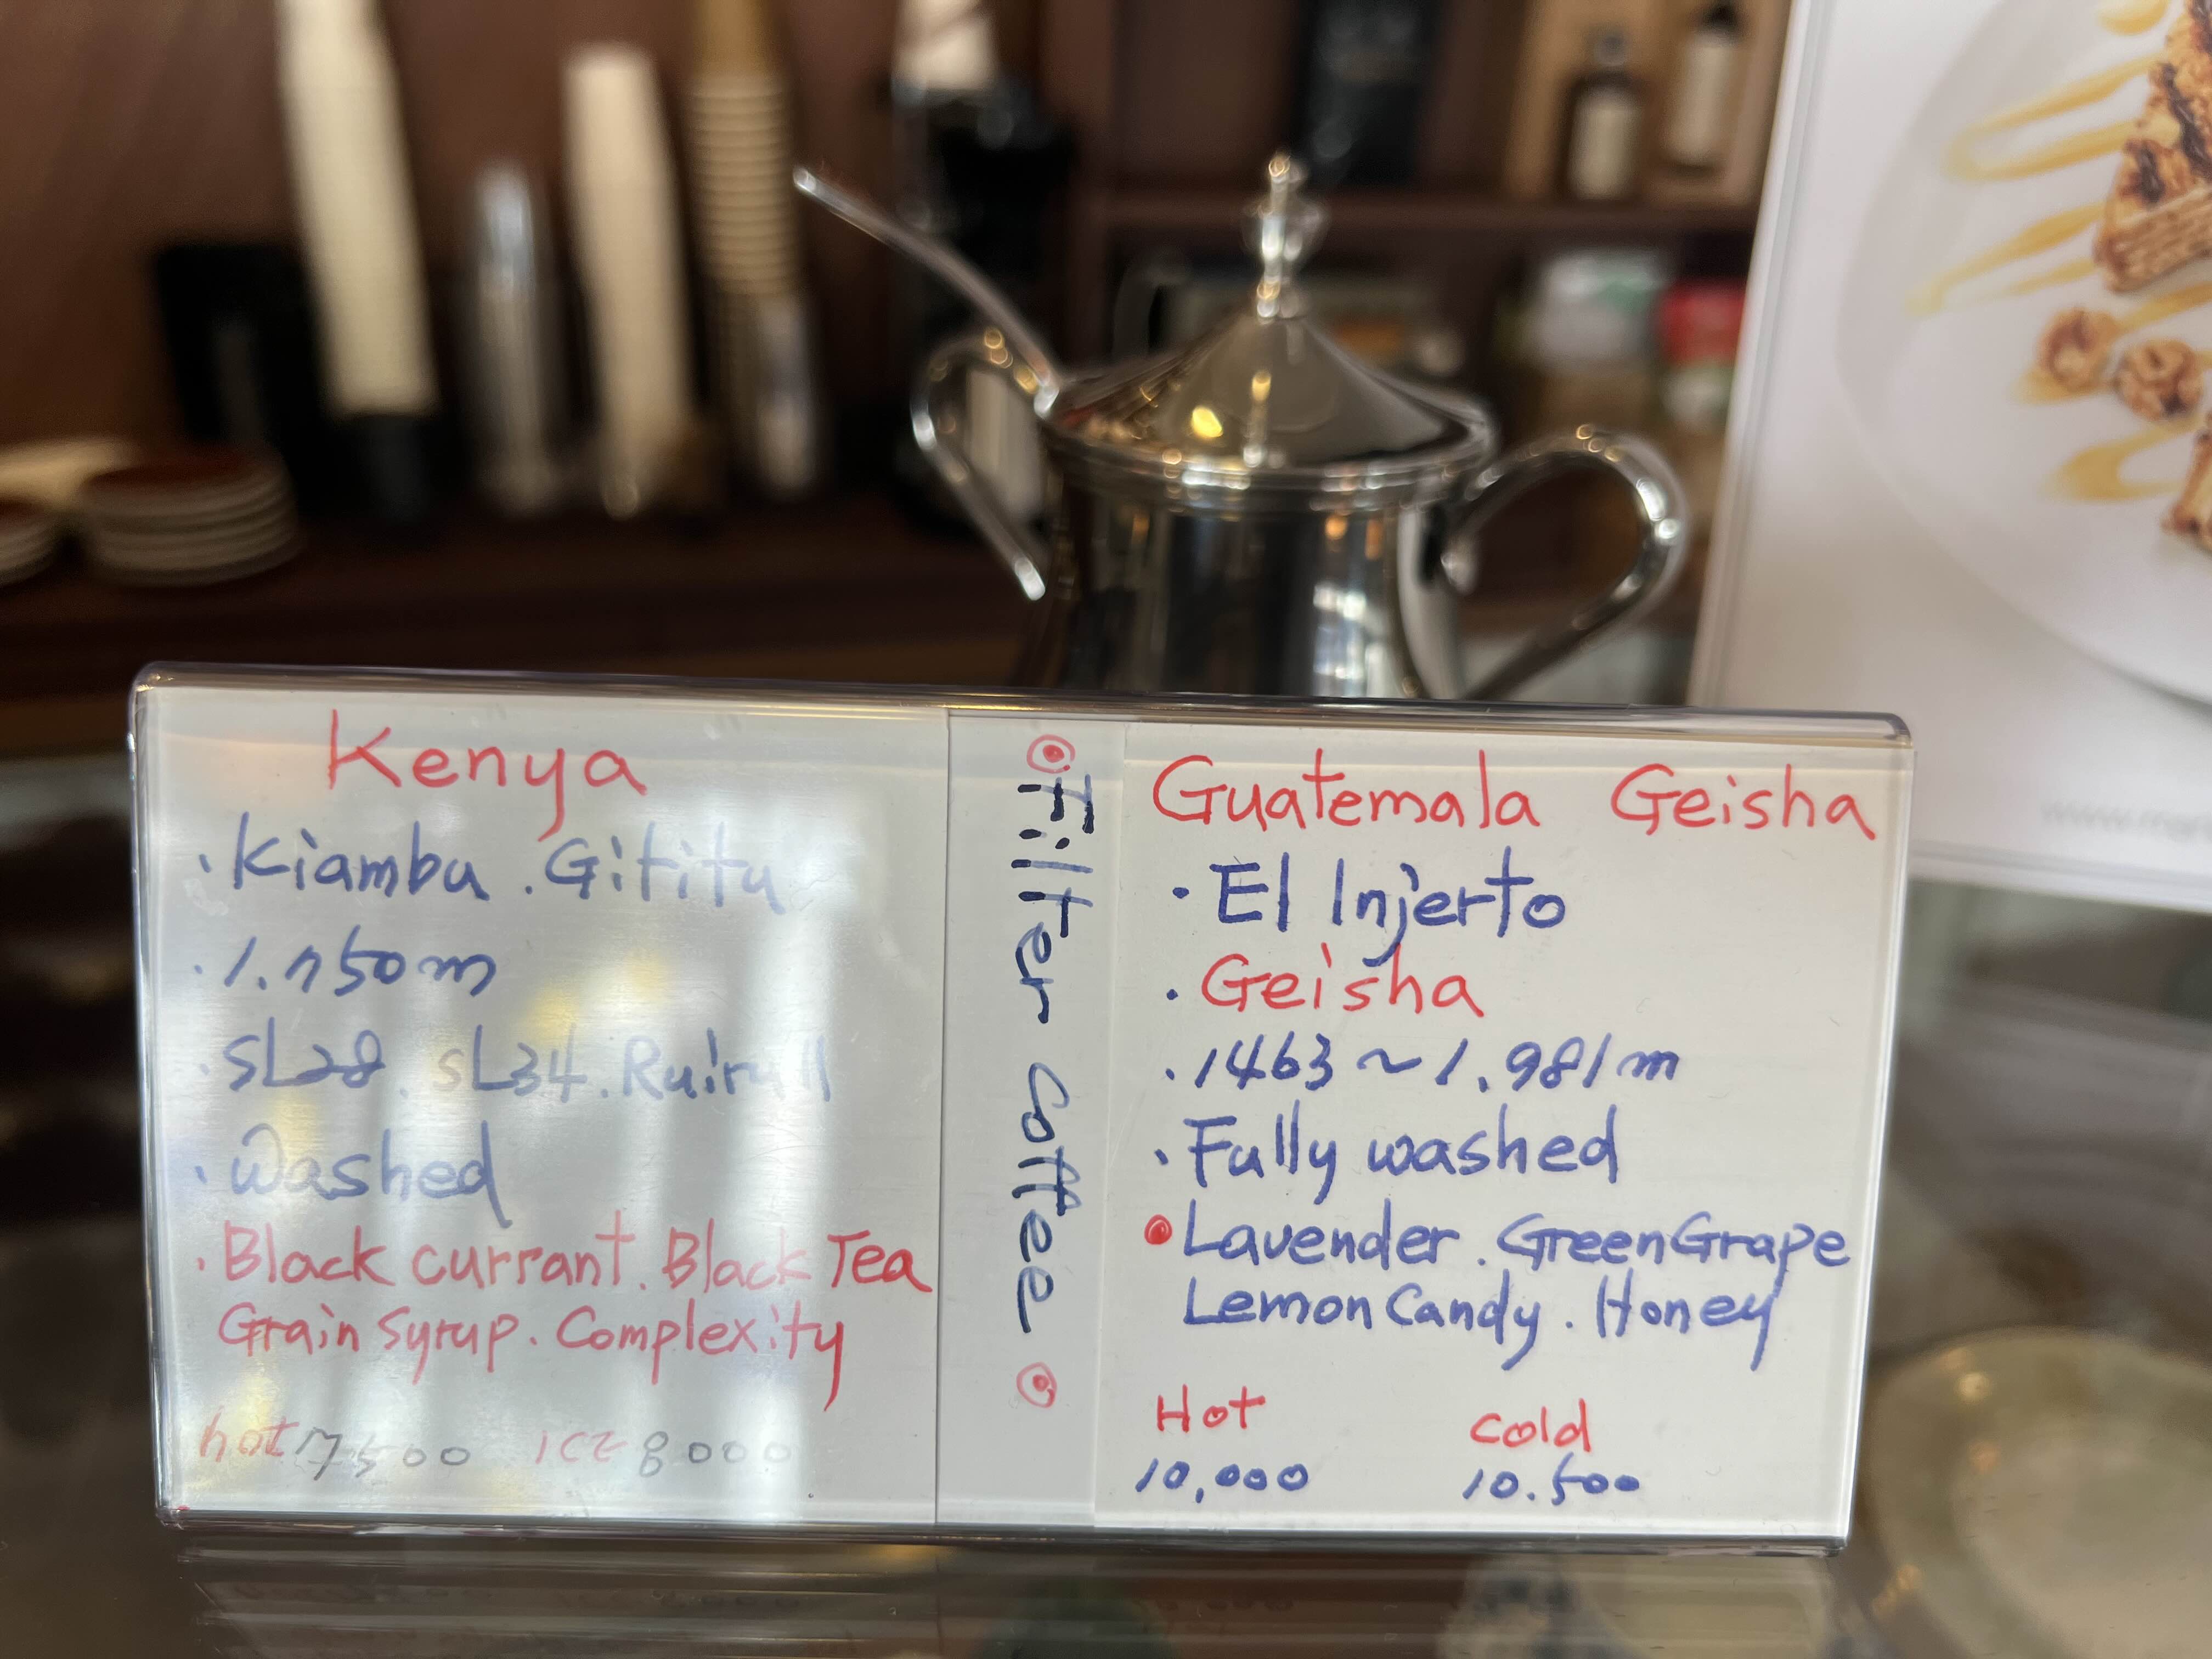 Kenya
· Kiambu . Gititu
· 1.750m
· SL28. SL34. Ruiru 11
· Washed
· Black currant. Black Tea
Grain Syrup. Complexity
hot 7500 ICE 8000
Filter coffee
Guatemala Geisha
· El Injerto
· Geisha
· 1463 ~ 1.981m
· Fully washed
• Lavender. Green Grape
Lemon Candy. Honey
Hot Cold
10,000 10.500